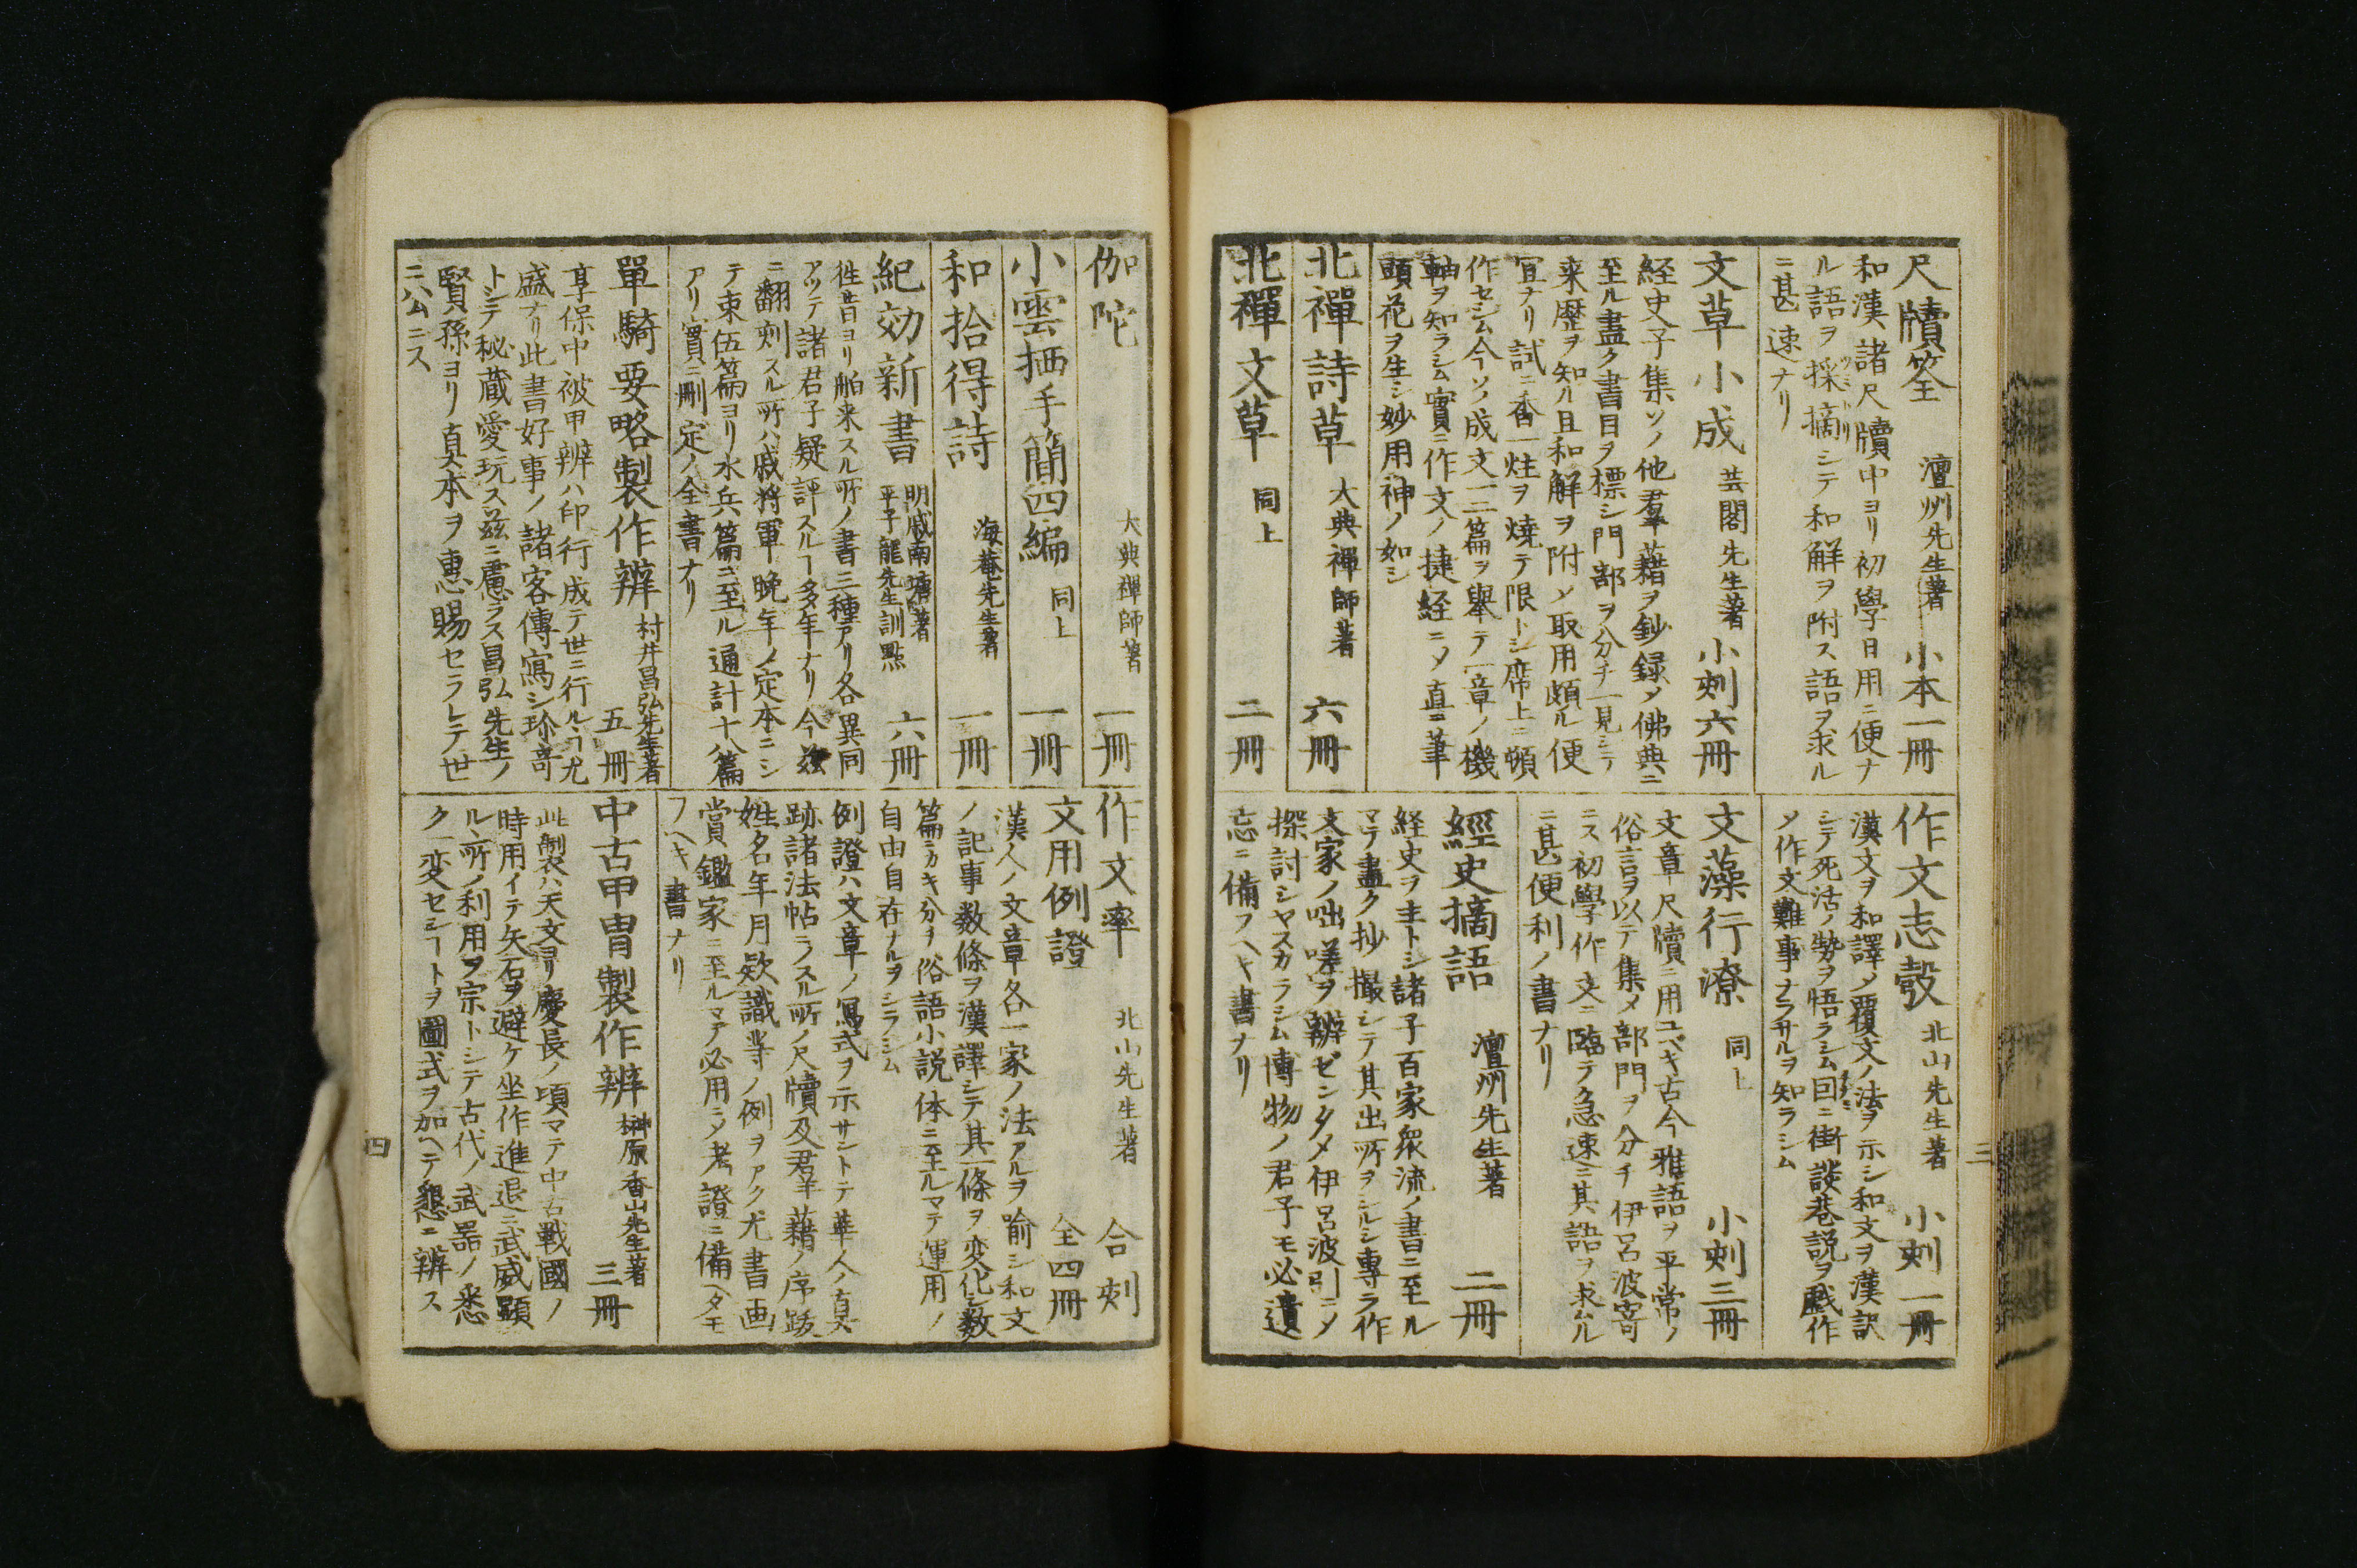 尺牘筌 澶州先生著 小本一冊
和漢諸尺牘中ヨリ初學日用ニ便ナ
ル語ヲ採摘シテ和解ヲ附ス語ヲ求ル
ニ甚速ナリ
文草小成 芸閣先生著 小刻六冊
経史子集ソノ他羣籍ヲ鈔録メ佛典ニ
至ル盡ク書目ヲ標シ門部ヲ分チ一見シテ
来歴ヲ知ル且和解ヲ附メ取用頗ル便
宜ナリ試ニ香一炷ヲ燒テ限トシ席上ニ頓
作セシム今ソノ成文一二篇ヲ舉テ一章ノ機
軸ヲ知ラシム實ニ作文ノ捷経ニメ直ニ筆
頭花ヲ生シ妙用神ノ如シ
北禪詩草 大典禅師著 六冊
北禪文草 同上 二冊
作文志彀 北山先生著 小刻一冊
漢文ヲ和譯メ覆文ノ法ヲ示シ和文ヲ漢訳
シテ死活ノ勢ヲ悟ラシム囙ニ街談巷説ヲ戯作
メ作文難事ナラサルヲ知ラシム
文藻行潦 同上 小刻三冊
文章尺牘ニ用ユベキ古今雅語ヲ平常ノ
俗言ヲ以テ集メ部門ヲ分チ伊呂波寄
ニス初學作文ニ臨テ急速ニ其語ヲ求ムル
ニ甚便利ノ書ナリ
經史摘語 澶州先生著 二冊
経史ヲ主トシ諸子百家衆流ノ書ニ至ル
マテ盡ク抄撮シテ其出所ヲシルシ専ラ作
文家ノ咄嗟ヲ辨ゼンタメ伊呂波引ニメ
探討シヤスカラシム博物ノ君子モ必遺
忘ニ備フヘキ書ナリ
三
伽陀 大典禅師著 一冊
小雲栖手簡四編 同上 一冊
和拾得詩 海菴先生著 一冊
紀効新書 明戚南塘著 平子龍先生訓點 六冊
徃昔ヨリ舶来スル所ノ書三種アリ各異同
アツテ諸君子疑評スルヿ多年ナリ今茲
ニ翻刻スル所ハ戚將軍晩年ノ定本ニシ
テ束伍篇ヨリ水兵篇ニ至ル通計十八篇
アリ實ニ刪定ノ全書ナリ
單騎要略製作辨 村井昌弘先生著 五冊
享保中被甲辨ハ印行成テ世ニ行ルヽヿ尤
盛ナリ此書好事ノ諸客傳寫シ珎奇
トシテ秘蔵愛玩ス茲ニ慮ラス昌弘先生ノ
賢孫ヨリ真本ヲ惠賜セラレテ世
ニ公ニス
作文率 北山先生著 合刻
文用例證 全四冊
漢人ノ文章各一家ノ法アルヲ喻シ和文
ノ記事数條ヲ漢譯シテ其一條ヲ変化シ数
篇ニカキ分ケ俗語小説体ニ至ルマテ運用ノ
自由自在ナルヲシラシム
例證ハ文章ノ寫式ヲ示サントテ華人ノ真
跡諸法帖ニノスル所ノ尺牘及羣籍ノ序跋
姓名年月欵識等ノ例ヲアク尤書画
賞鑑家ニ至ルマテ必用ニメ考證ニ備ヘタモ
フヘキ書ナリ
中古甲冑製作辨 榊原香山先生著 三冊
此製ハ天文ヨリ慶長ノ頃マテ中古戰國ノ
時用イテ矢石ヲ避ケ坐作進退ニ武威顕
ルヽ所ノ利用ヲ宗トシテ古代ノ武器ノ悉
ク一変セシヿトヲ圖式ヲ加ヘテ懇ニ辨ス
四